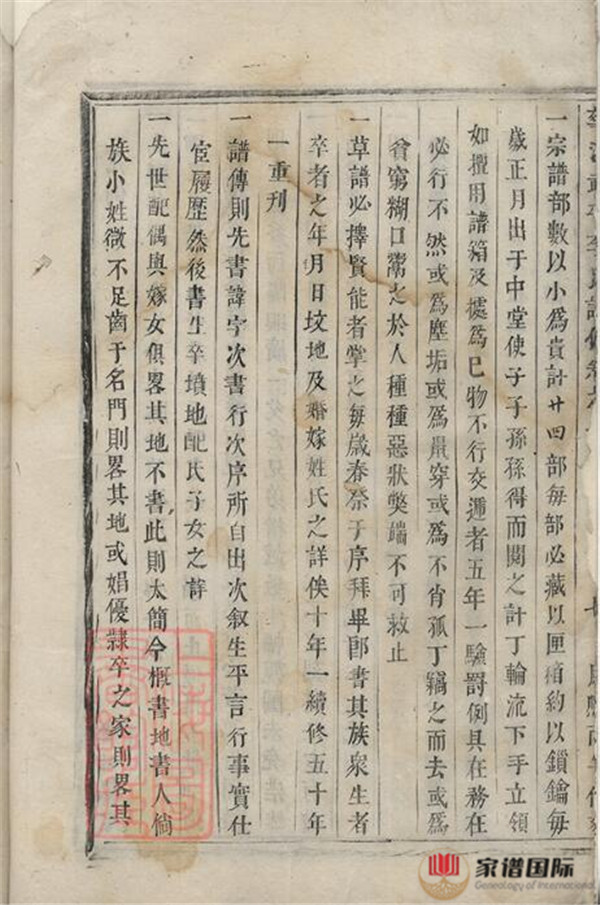 一宗譜部數以小為貴計廿四部每部必藏以匣箱約以鎖鑰每
歲正月出于中堂使子子孫孫得而閱之計丁輪流下手立領
如擅用譜箱及據為巳物不行交遞者五年一驗罰例具在務在
必行不然或為塵垢或為鼠穿或為不肖孤丁竊之而去或為
貧窮糊口鬻之於人種種惡狀獘端不可救止
一草譜必擇賢能者掌之每歲春祭于序拜畢即書其族衆生者
卒者之年月日坟地及婚嫁姓氏之詳俟十年一續修五十年
一重刊
一譜傳則先書諱字次書行次序所自出次叙生平言行事實仕
宦履歷然後書生卒墳地配氏子女之詳
一先世配偶與嫁女俱畧其地不書此則太簡今概書地書人倘
族小姓微不足齒于名門則畧其地或娼優隸卒之家則畧其
家谱国际
Genealogy of International